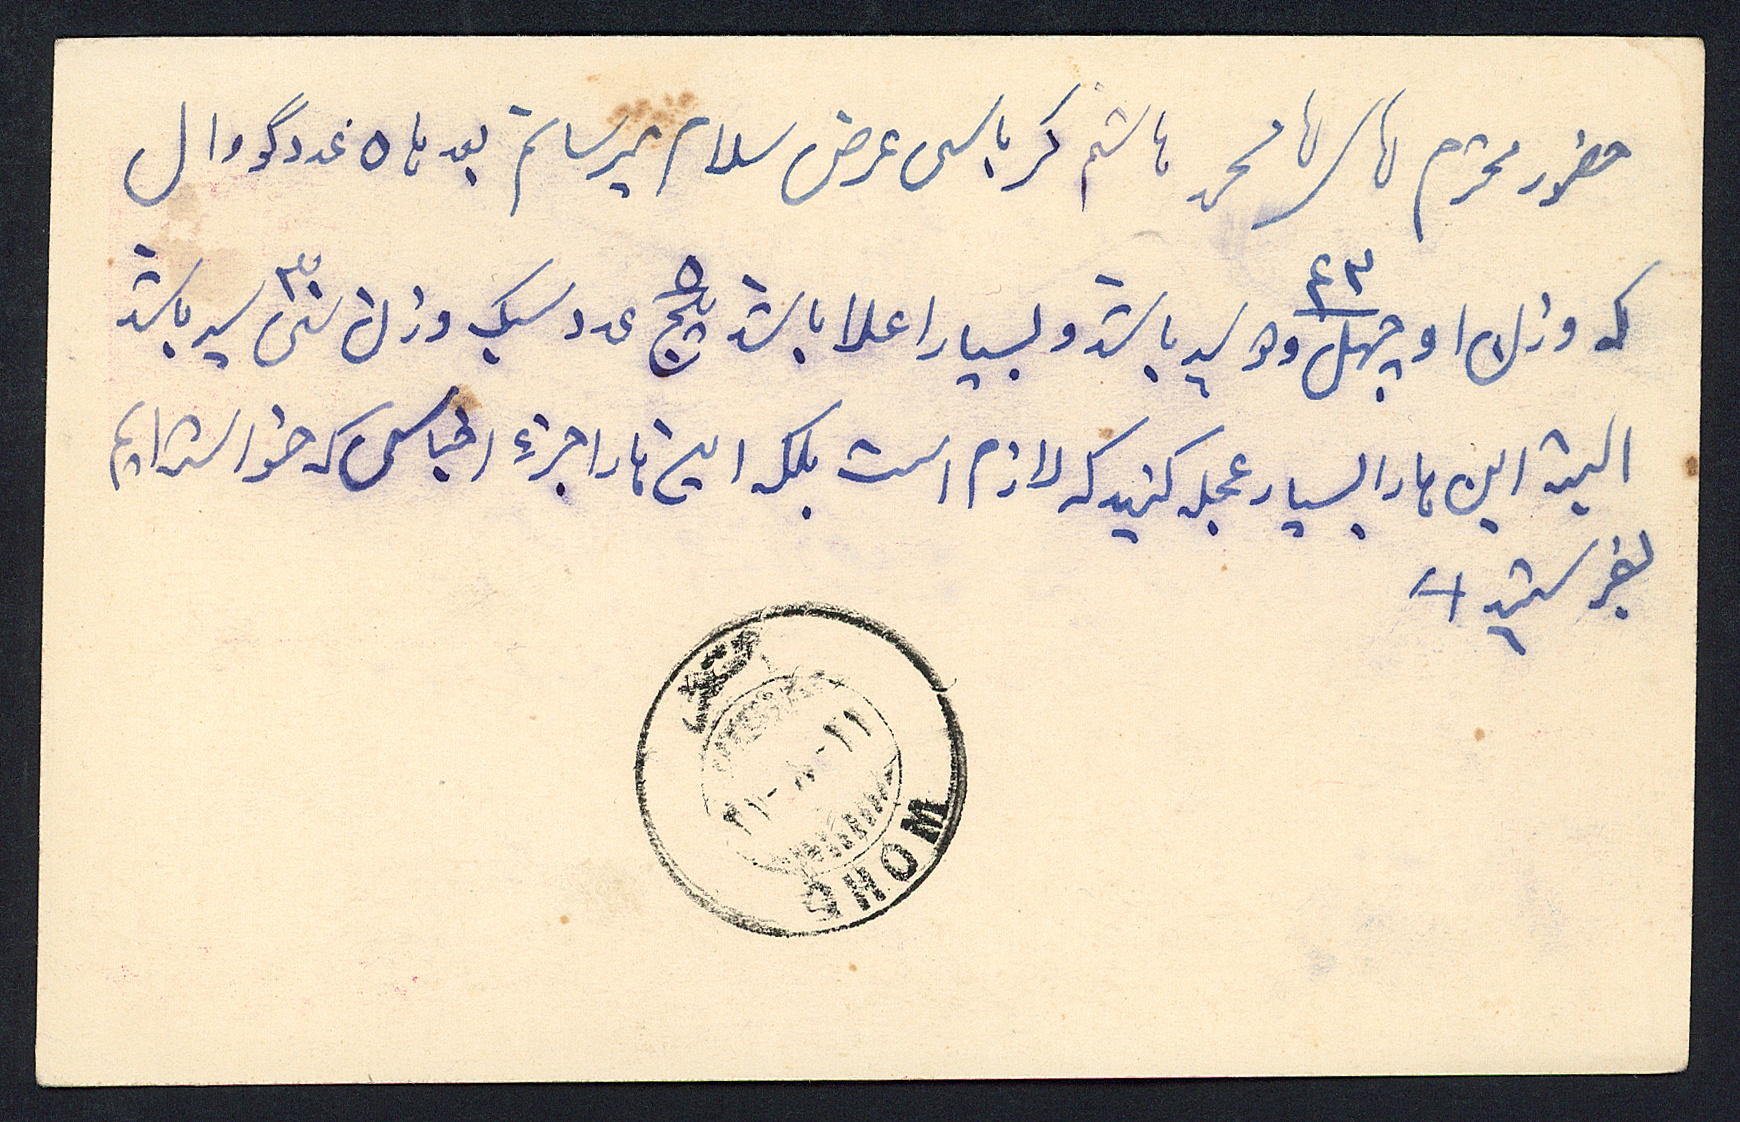 حضور محترم محمد هاشم کرباسی عرض سلام میرسانم بعد ها ۵ عدد گ وال
۴۳
که وزن او چهل و سیر باشد و بسیار اعلا باشد پنج ۵ عدد سبک وزن سی ۳۰ سیر باشد
البته این ها را بسیار عجله کنید که لازم است بلکه این ها را جزء اجناسی که خواسته ایم
بفرستید
GHOM